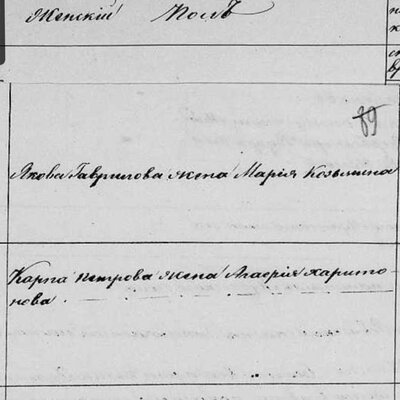 Женскій Полъ
89
Якова Гаврилова жена Марія Козьмина
Карпа Петрова жена Агаѳрія Харито-
нова